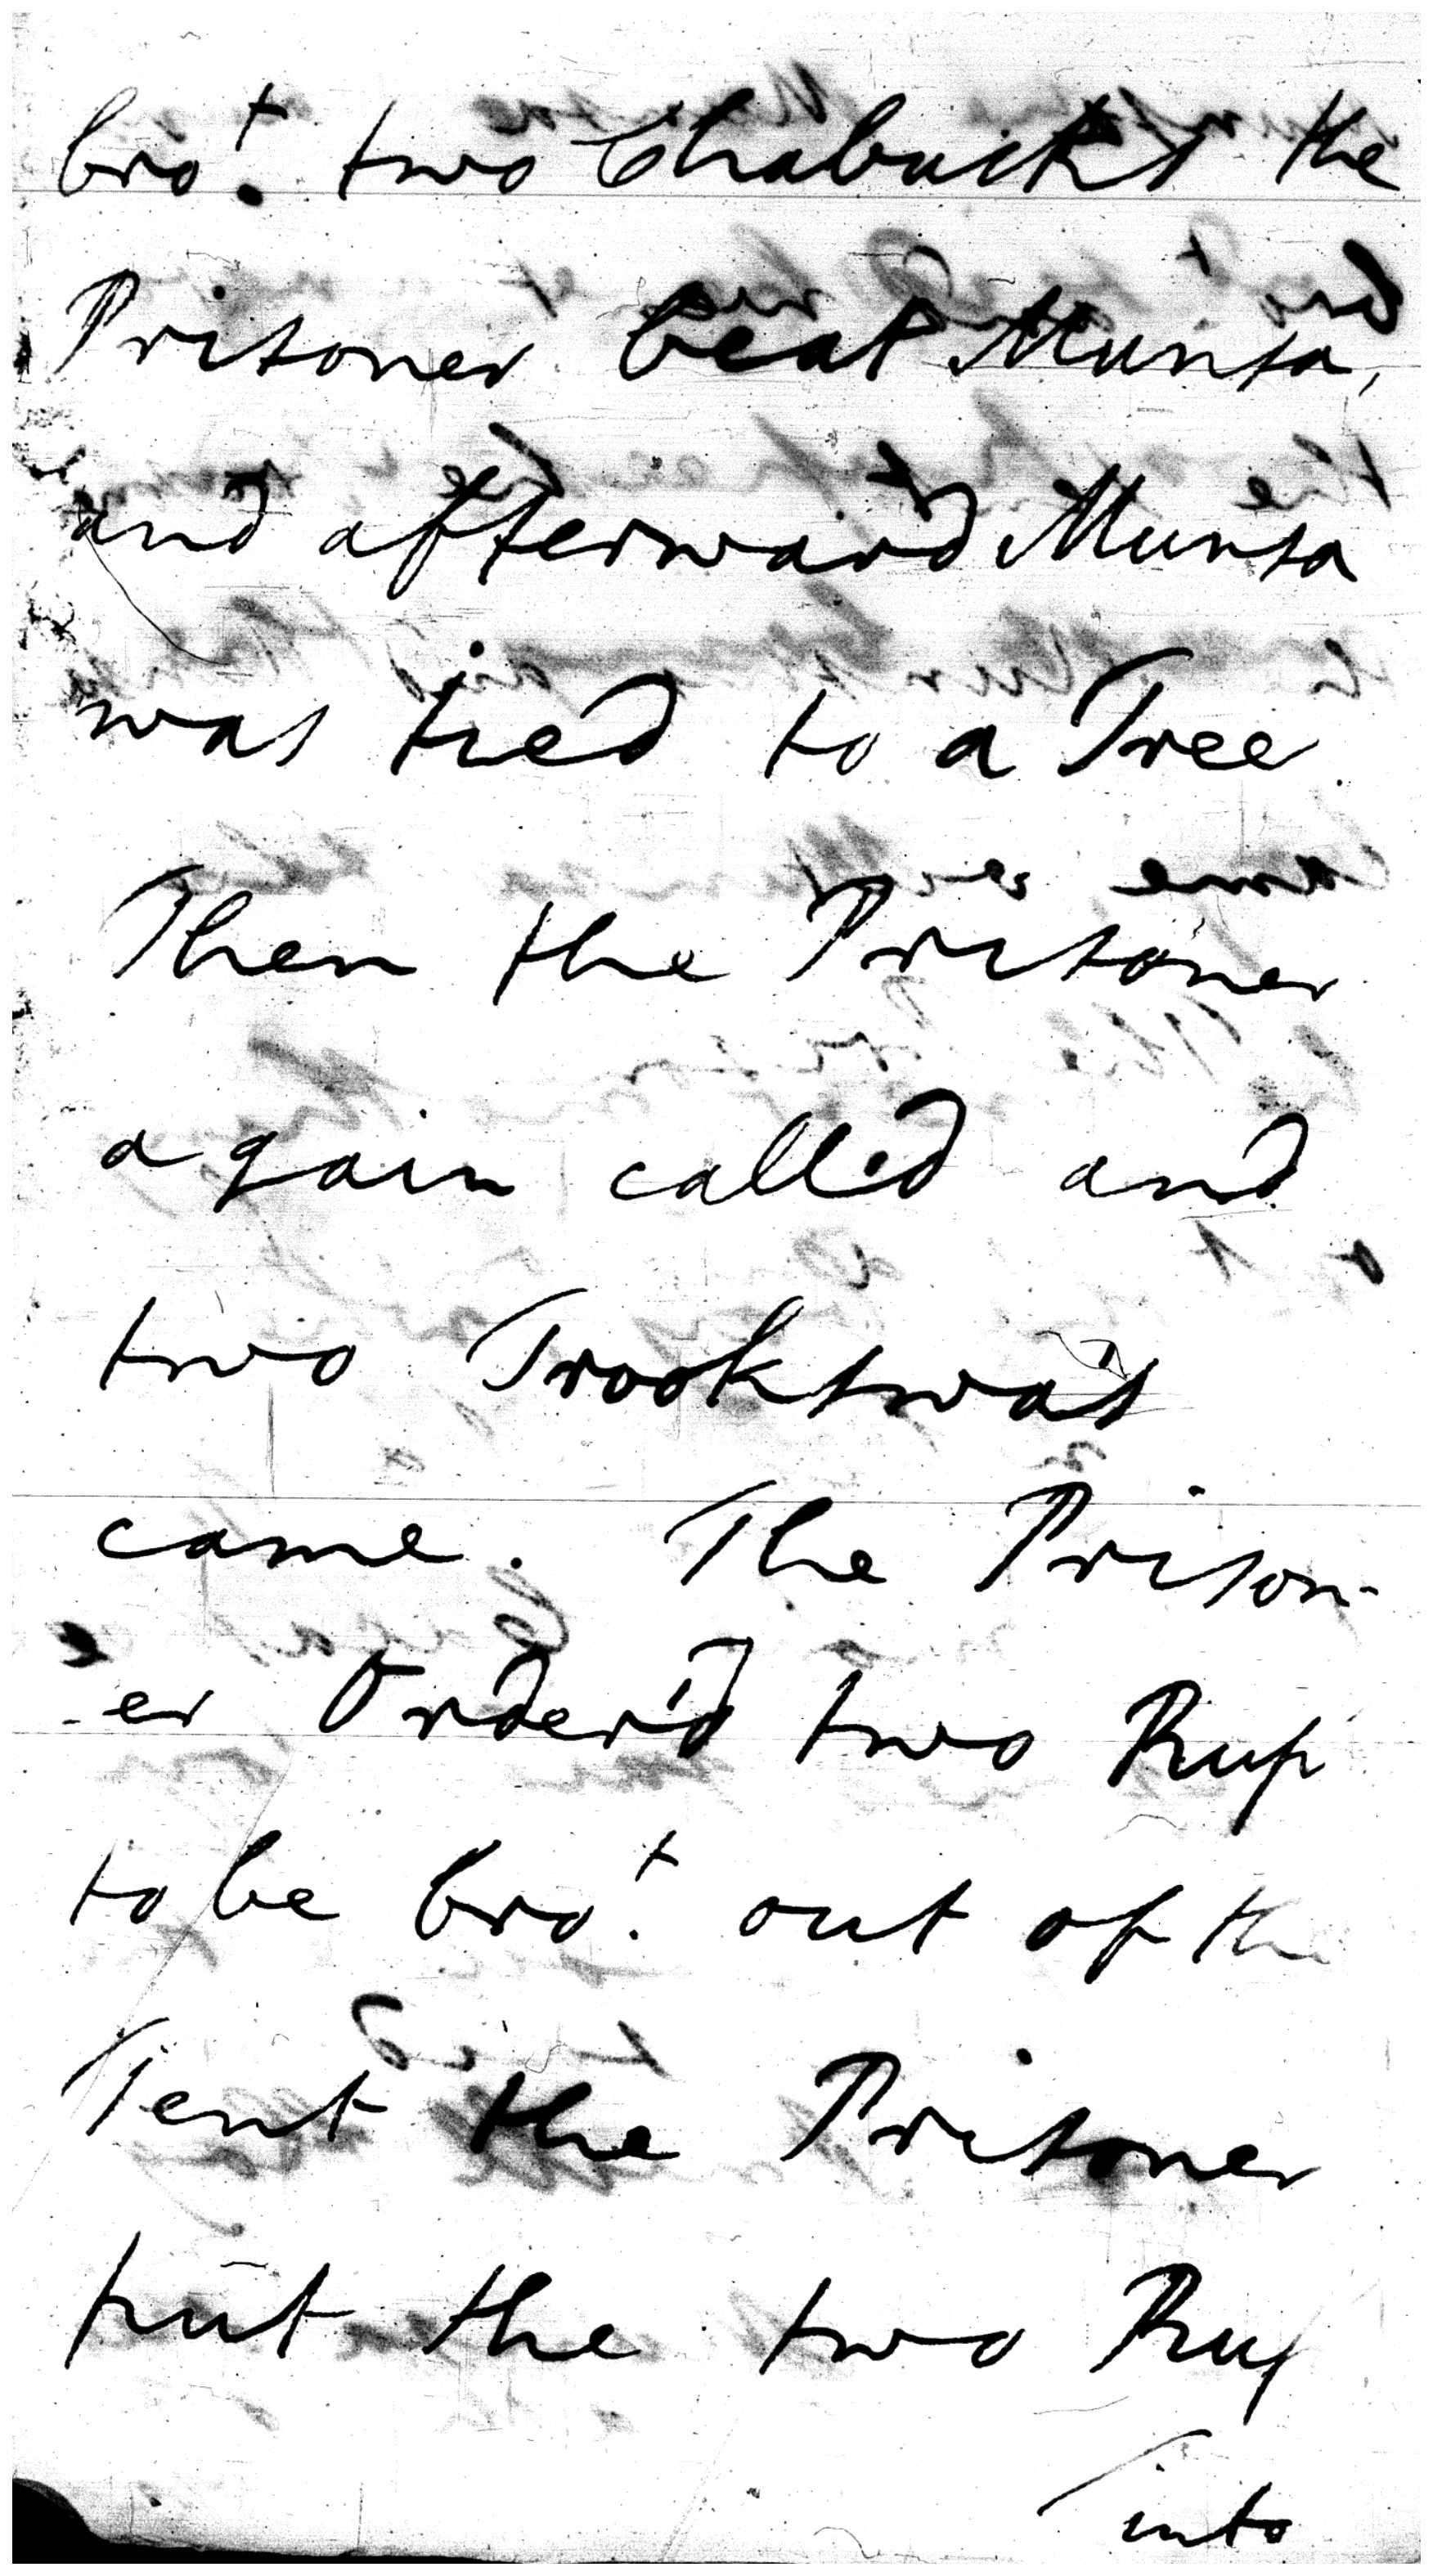 bro.t two Chabucks the
Prisoner beat Munsa,
and afterward Munsa
was tied to a Tree
Then the Prisoner
again called and
two Trookswas
came. The Prison-
-er Order'd two Rup
to be bro.t out of the
Tent the Prisoner
put the two Rup
into